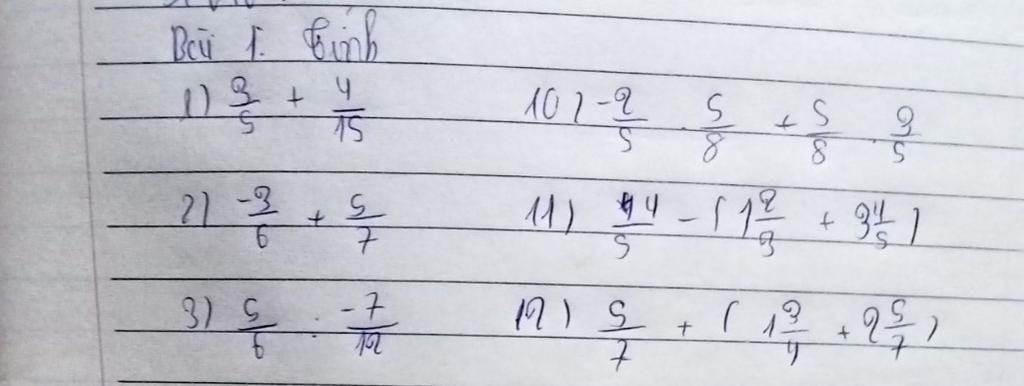 Bài 1. Tính
1) 3/5 + 4/15 10) -2/5 . 5/8 + 5/8 . 3/5
2) -3/6 + 5/7 11) 14/5 - (1 2/3 + 3 4/5)
3) 5/6 : -7/12 12) 5/7 + (1 3/4 + 2 5/7)